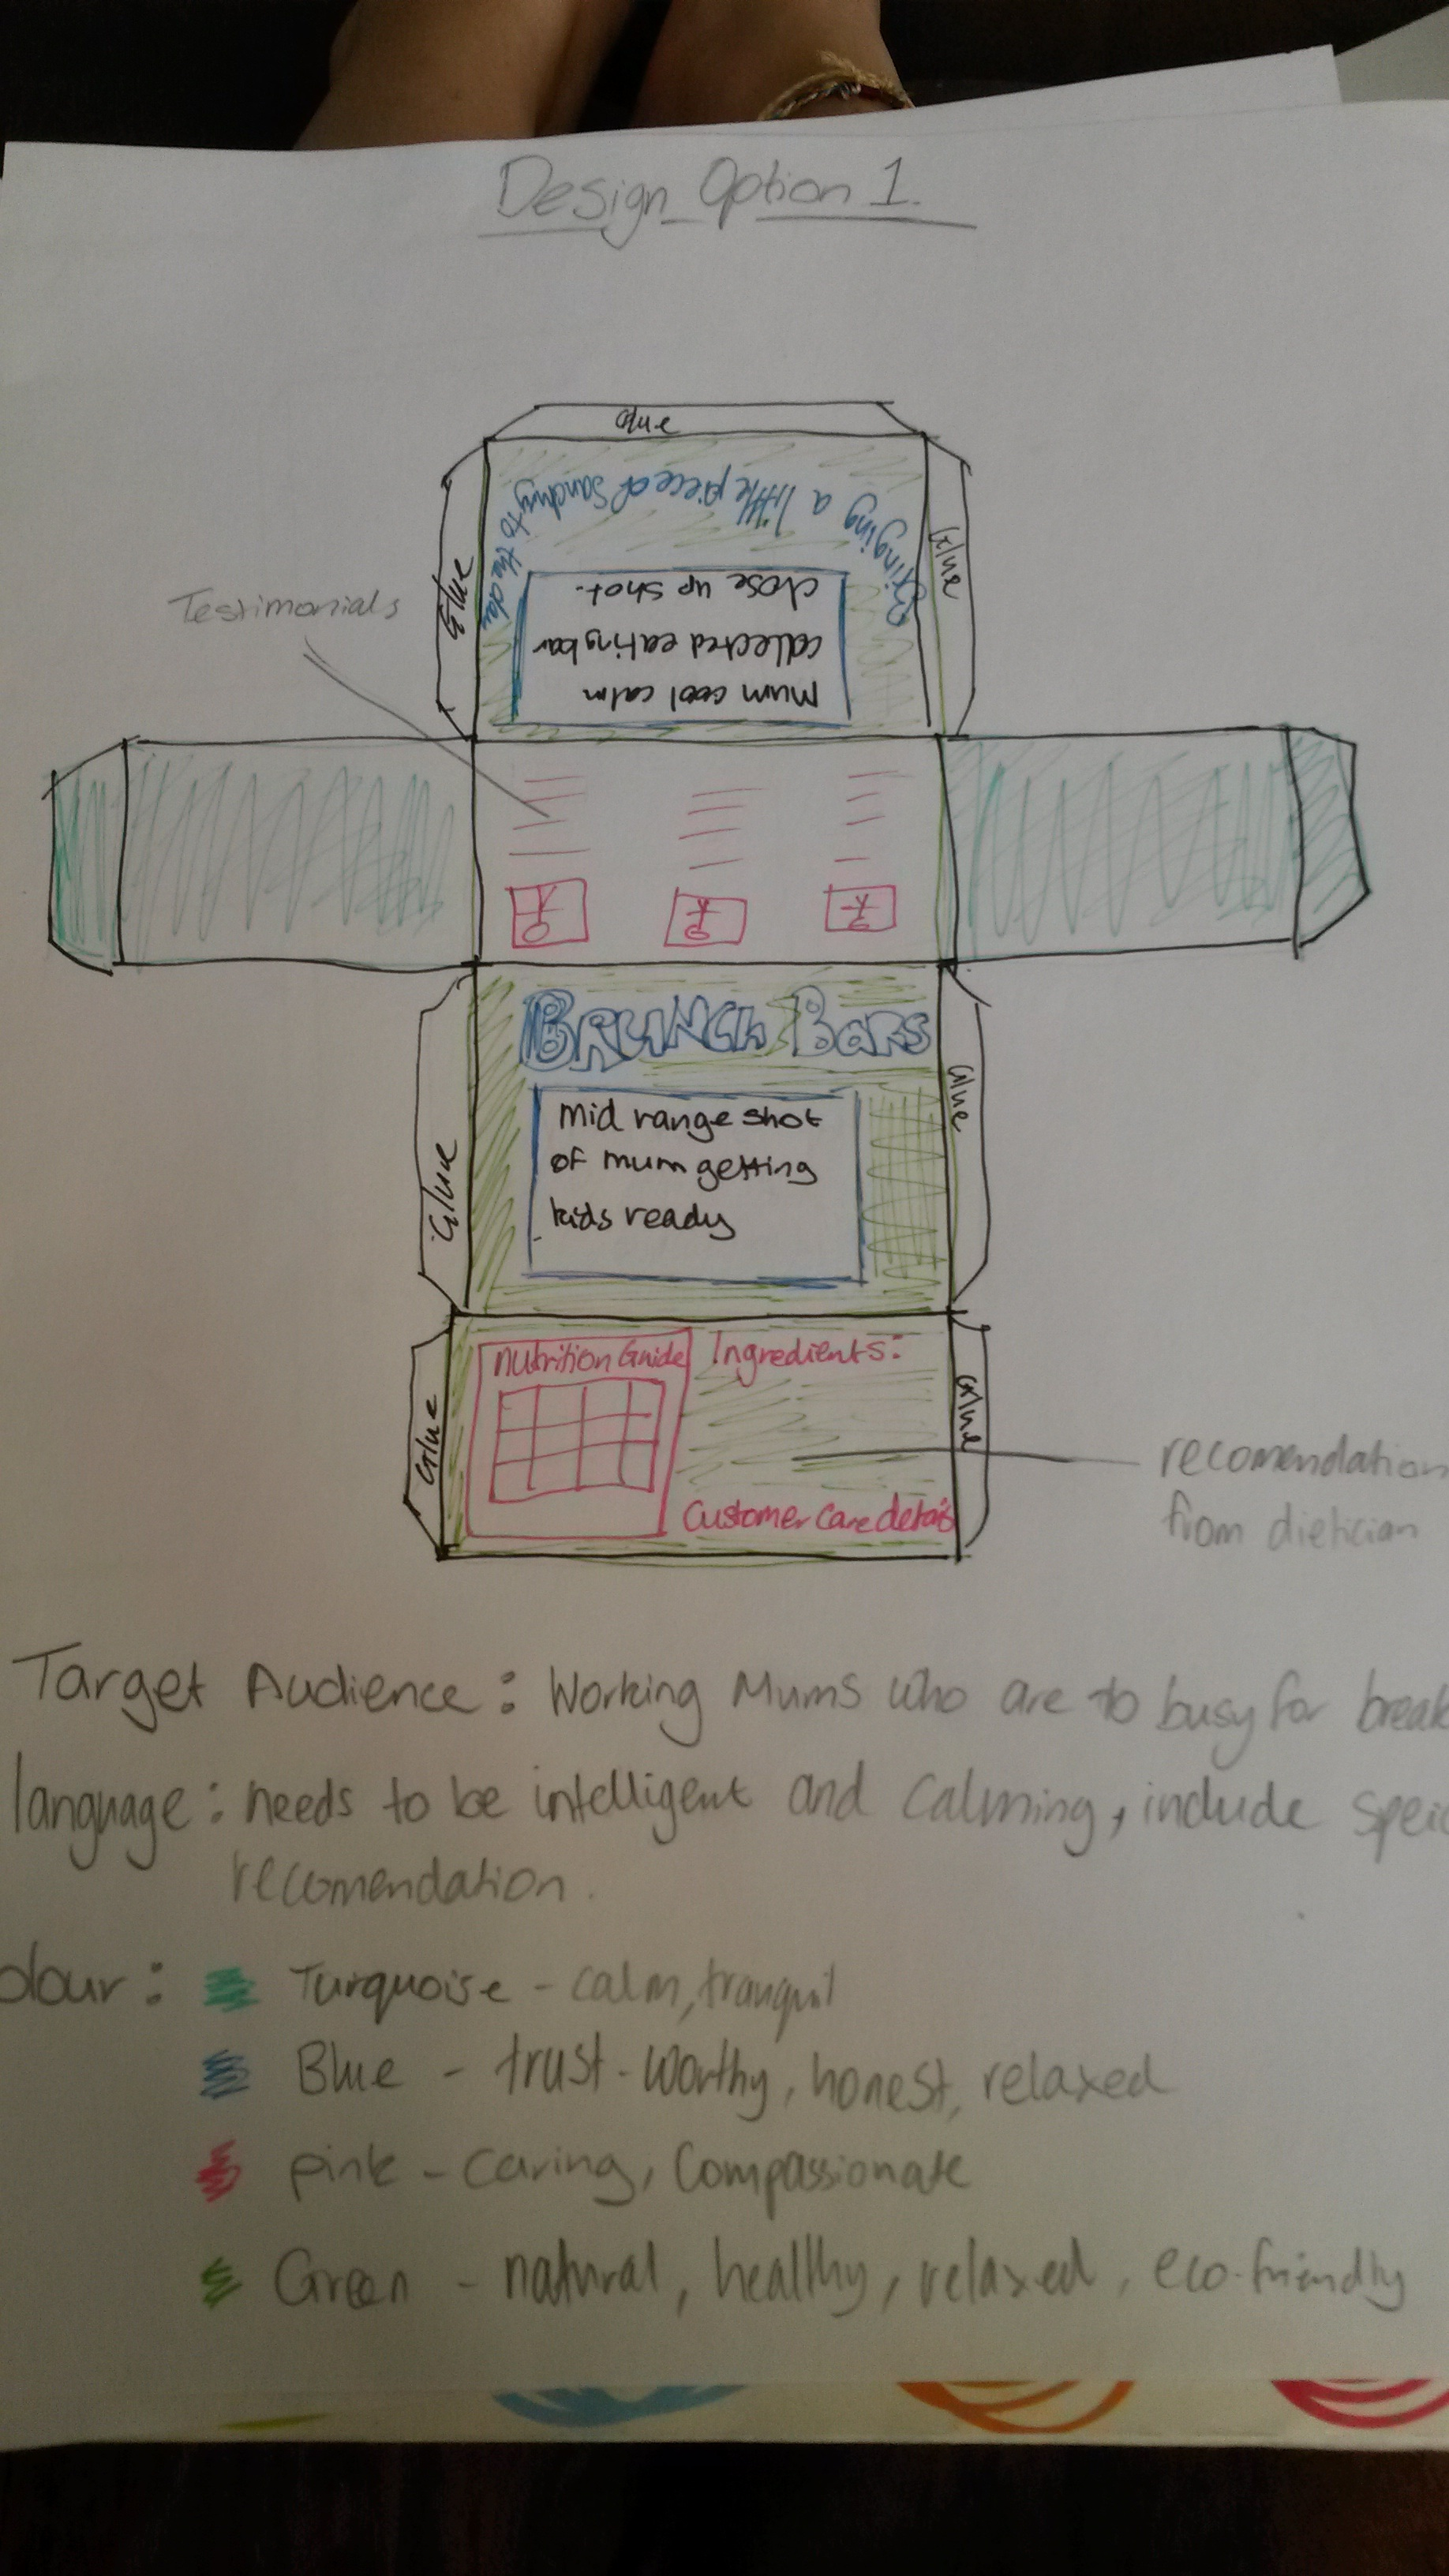 Design Option 1.
Glue
Glue
Glue
Bringing a little piece of Sanctury to the day
Mum cool calm
collected eating bar
close up shot.
Testimonials
BRUNCH BARS
Glue
Glue
Mid range shot
of mum getting
kids ready
Nutrition Guide
Ingredients:
Customer care details
Glue
Glue
recomendation
from dietician
Target Audience: Working Mums who are to busy for break
language: needs to be intelligent and calming, include
recomendation.
olour:
Turquoise - calm, tranquil
Blue - trust-worthy, honest, relaxed
pink - caring, compassionate
Green - natural, healthy, relaxed, eco-friendly